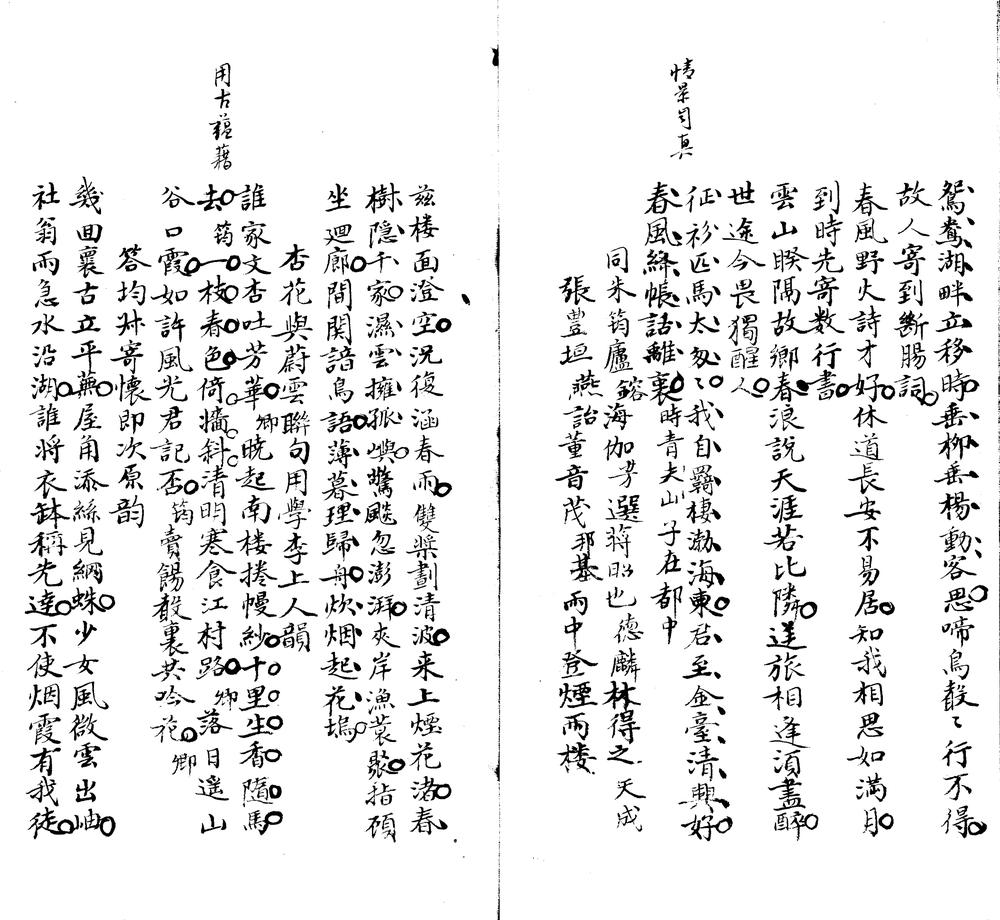 情景何真
鴛鴦湖畔立移時垂柳垂楊動客思啼鳥聲〻行不得
故人寄到斷腸詞
春風野火詩才好休道長安不易居知我相思如滿月
到時先寄数行書
雲山睽隔故鄉春浪說天涯若比隣逆旅相逢須盡醉
世途今畏獨醒人
征衫匹馬太匆〻我自羈棲渤海東君至金臺清興好
春風絳帳話離裏時青夫山子在都中
同朱筠廬鎔海伽芳選蔣昭也德麟林得之天成
張豊垣燕詒董音茂邦基雨中登煙雨楼
兹楼面澄空況復涵春雨雙槳劃清波来上煙花渚春
樹隱千家濕雲擁孤嶼驚颷忽澎湃夾岸漁蓑聚指顧
坐迴廊間関諳鳥語薄暮理歸舟炊烟起花塢
杏花與蔚雲聯句用學李上人韻
誰家文杏吐芳華卿晓起南楼捲幔紗十里生香隨馬
用古蘊藉
去筠一枝春色倚牆斜清明寒食江村路卿落日遥山
谷口霞如許風光君記否筠賣餳聲裏共吟花卿
答均叔寄懷即次原韵
幾回襄古立平蕪屋角添絲見網蛛少女風微雲出岫
社翁雨急水沿湖誰将衣缽稱先達不使烟霞有我徒